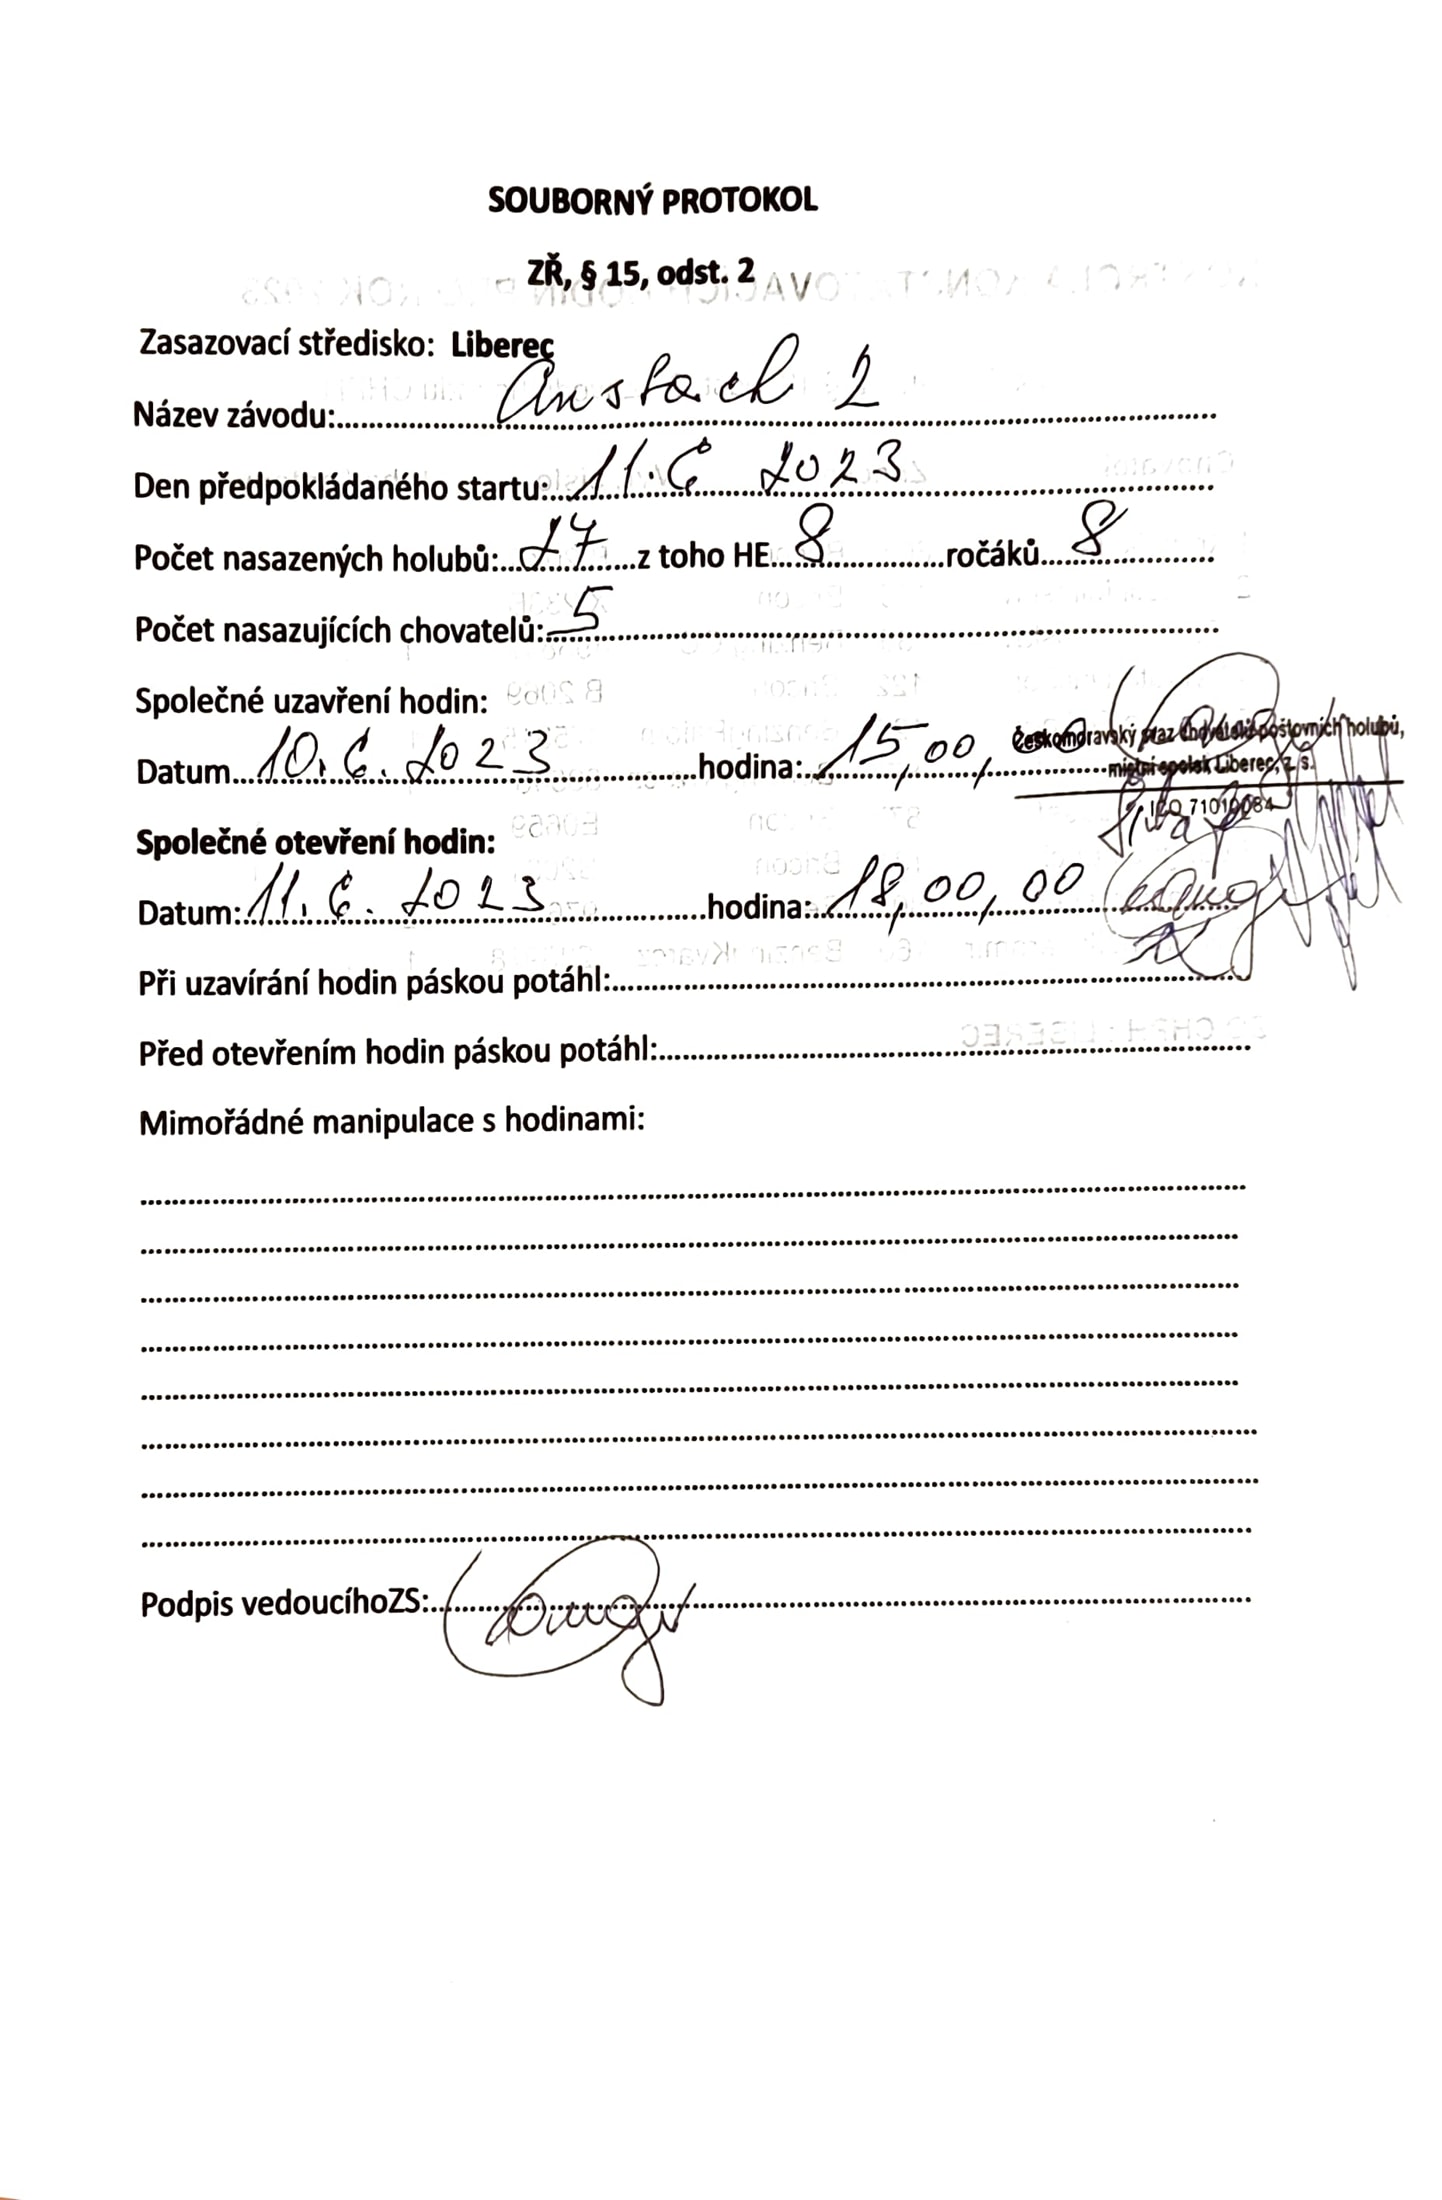 SOUBORNÝ PROTOKOL
ZŘ, § 15, odst. 2
Zasazovací středisko: Liberec
Název závodu: Ansbach 2
Den předpokládaného startu: 11.6 2023
Počet nasazených holubů: 27 z toho HE 8 ročáků 8
Počet nasazujících chovatelů: 5
Společné uzavření hodin:
Datum 10.6.2023 hodina: 15,00,00
Českomoravský svaz chovatelů poštovních holubů,
místní spolek Liberec, z. s.
IČO 71010084
Společné otevření hodin:
Datum: 11.6.2023 hodina: 18,00,00
Při uzavírání hodin páskou potáhl:
Před otevřením hodin páskou potáhl:
Mimořádné manipulace s hodinami:
Podpis vedoucíhoZS: